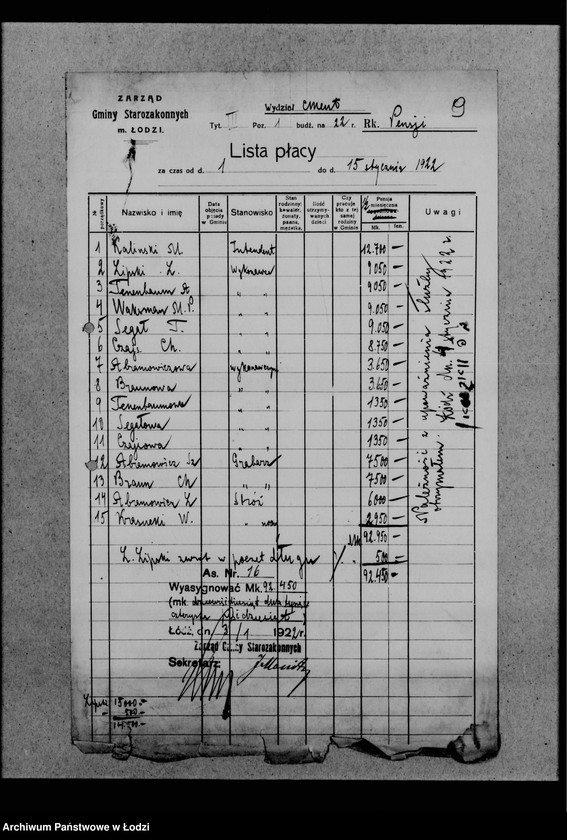 ZARZĄD
Gminy Starozakonnych
m. ŁODZI.
Wydział Cment
9
Tyt. II Poz. 1 budż. na 22 r. Rk. Pensji
Lista płacy
za czas od d. 1 do d. 15 stycznia 1922
№ porządkowy Nazwisko i imię Data objęcia posady w Gminie Stanowisko Stan rodzinny: kawaler, żonaty, panna, mężatka. Ilość utrzymywanych dzieci Czy pracuje kto z tej samej rodziny w Gminie ½ Pensja miesięczna Mk. fen. Uwagi
1 Kaliński M. Intendent 12.700 —
2 Lipski L. wykonawca 9.050 —
3 Tenenbaum A „ „ 9050 —
4 Wakerman M. P. „ „ 9.050 —
5 Segał T. „ „ 9.050 —
6 Czajs Ch. „ „ 8.750 —
7 Abramowiczowa wykonawczyni 3.650 —
8 Braunowa „ „ 3.650 —
9 Tenenbaumowa „ „ 1350 —
10 Segałowa „ „ 1350 —
11 Czajsowa „ „ 1350 —
12 Abramowicz Sz Grabarz 7500 —
13 Braun Ch „ „ 7500 —
14 Abramowicz L Stróż 6000 —
15 Krasucki W. „ nocn 2950 —
Mk 92.950 —
L. Lipski zwrot w poczet długu ./. 500 —
92.450 —
Należność z upoważnienia służby
otrzymałem. Łódź dn. 4 stycznia 1922 r.
As. Nr. 16
Wyasygnować Mk. 92.450
(mk. dziewięćdziesiąt dwa tysiące
czterysta pięćdziesiąt)
Łódź, dn. 3/1 1922 r.
Zarząd Gminy Starozakonnych
Sekretarz:
Lipski 15000.-
500.-
14.500.-
Archiwum Państwowe w Łodzi